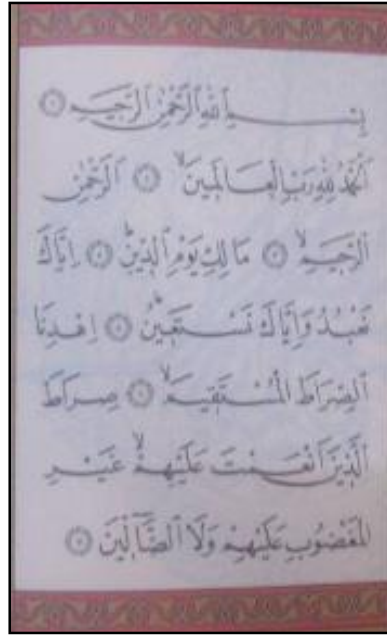 بِسْمِ ٱللهِ ٱلرَّحْمٰنِ ٱلرَّحِيمِ
اَلْحَمْدُ لِلّٰهِ رَبِّ الْعَالَمِينَۙ اَلرَّحْمٰنِ
الرَّحِيمِۙ مَالِكِ يَوْمِ الدِّينِۜ اِيَّاكَ
نَعْبُدُ وَاِيَّاكَ نَسْتَعِينُۜ اِهْدِنَا
الصِّرَاطَ الْمُسْتَقِيمَۙ صِرَاطَ
الَّذِينَ اَنْعَمْتَ عَلَيْهِمْۙ غَيْرِ
الْمَغْضُوبِ عَلَيْهِمْ وَلَا الضَّٓالِّينَ